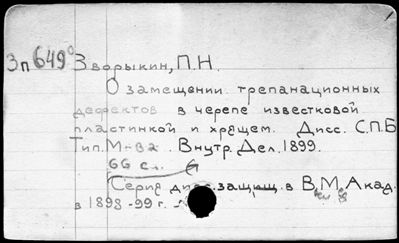 Зп 649⁰ Зворыкин, П.Н.
О замещении трепанационных
дефектов в черепе известковой
пластинкой и хрящем. Дисс. С.П.Б
Тип. М-ва. Внутр. Дел. 1899.
66 с.
(Серия дисс. защищ. в В. М. Акад.
в 1898-99 г.